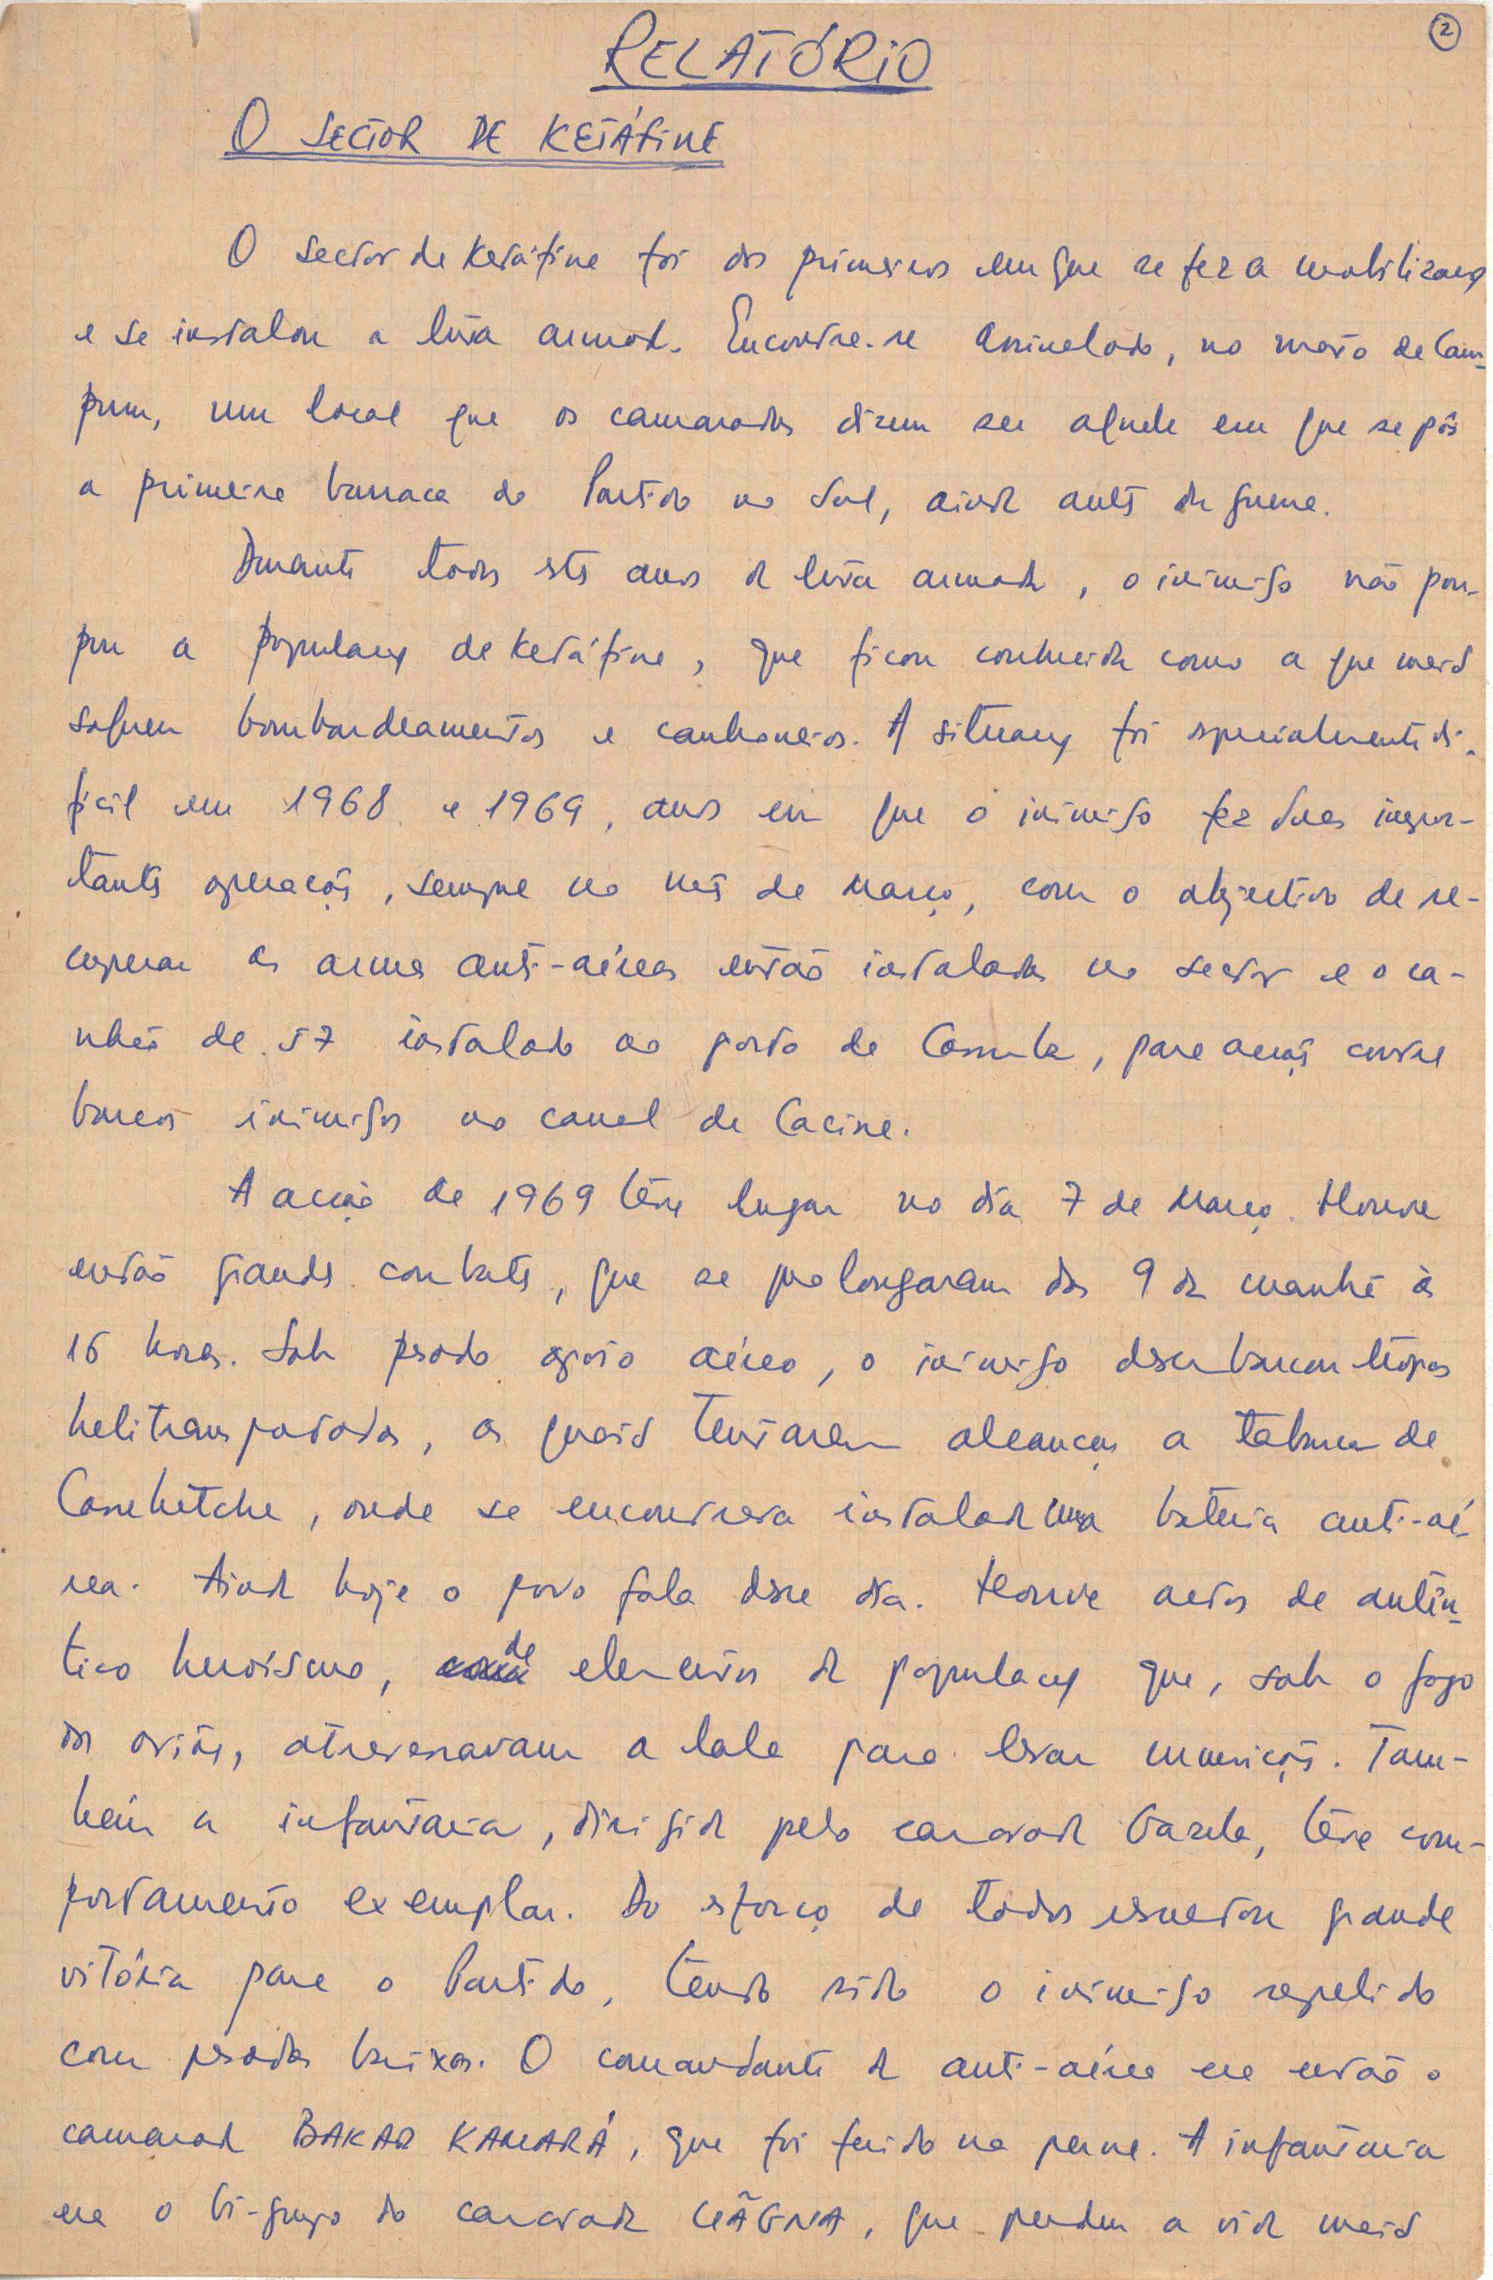 2
RELATÓRIO
O SECTOR DE KETÁFINE
O sector de Ketáfine foi dos primeiros em que se fez a mobilização
e se instalou a luta armada. Encontra-se assinalado, no mato de Cam-
pum, um local que os camaradas dizem ser aquele em que se pôs
a primeira barraca do Partido no Sul, ainda antes da guerra.
Durante todos estes anos de luta armada, o inimigo não pou-
pou a população de Ketáfine, que ficou conhecida como a que mais
sofreu bombardeamentos e canhoneios. A situação foi especialmente di-
fícil em 1968 e 1969, anos em que o inimigo fez duas impor-
tantes operações, sempre no mês de Março, com o objectivo de re-
cuperar as armas anti-aéreas então instaladas no sector e o ca-
nhão de 57 instalado no porto de , para acções contra
barcos inimigos no canal de Cacine.
A acção de 1969 têve lugar no dia 7 de Março. Houve
então grandes combates, que se prolongaram das 9 da manhã às
16 horas. Sob pesado apoio aéreo, o inimigo desembarcou tropas
helitransportadas, as quais tentaram alcançar a tabanca de
, onde se encontrava instalada uma bateria anti-aé-
rea. Ainda hoje o povo fala desse dia. Houve actos de autên-
tico heroísmo, de elementos da população que, sob o fogo
dos aviões, atravessavam a lala para levar munições. Tam-
bém a infantaria, dirigida pelo camarada , têve com-
portamento exemplar. Do esforço de todos resultou grande
vitória para o Partido, tendo sido o inimigo repelido
com pesadas baixas. O comandante da anti-aérea era então o
camarada BAKAR KAMARÁ, que foi ferido na perna. A infantaria
era o bi-grupo do camarada , que perdeu a vida mais